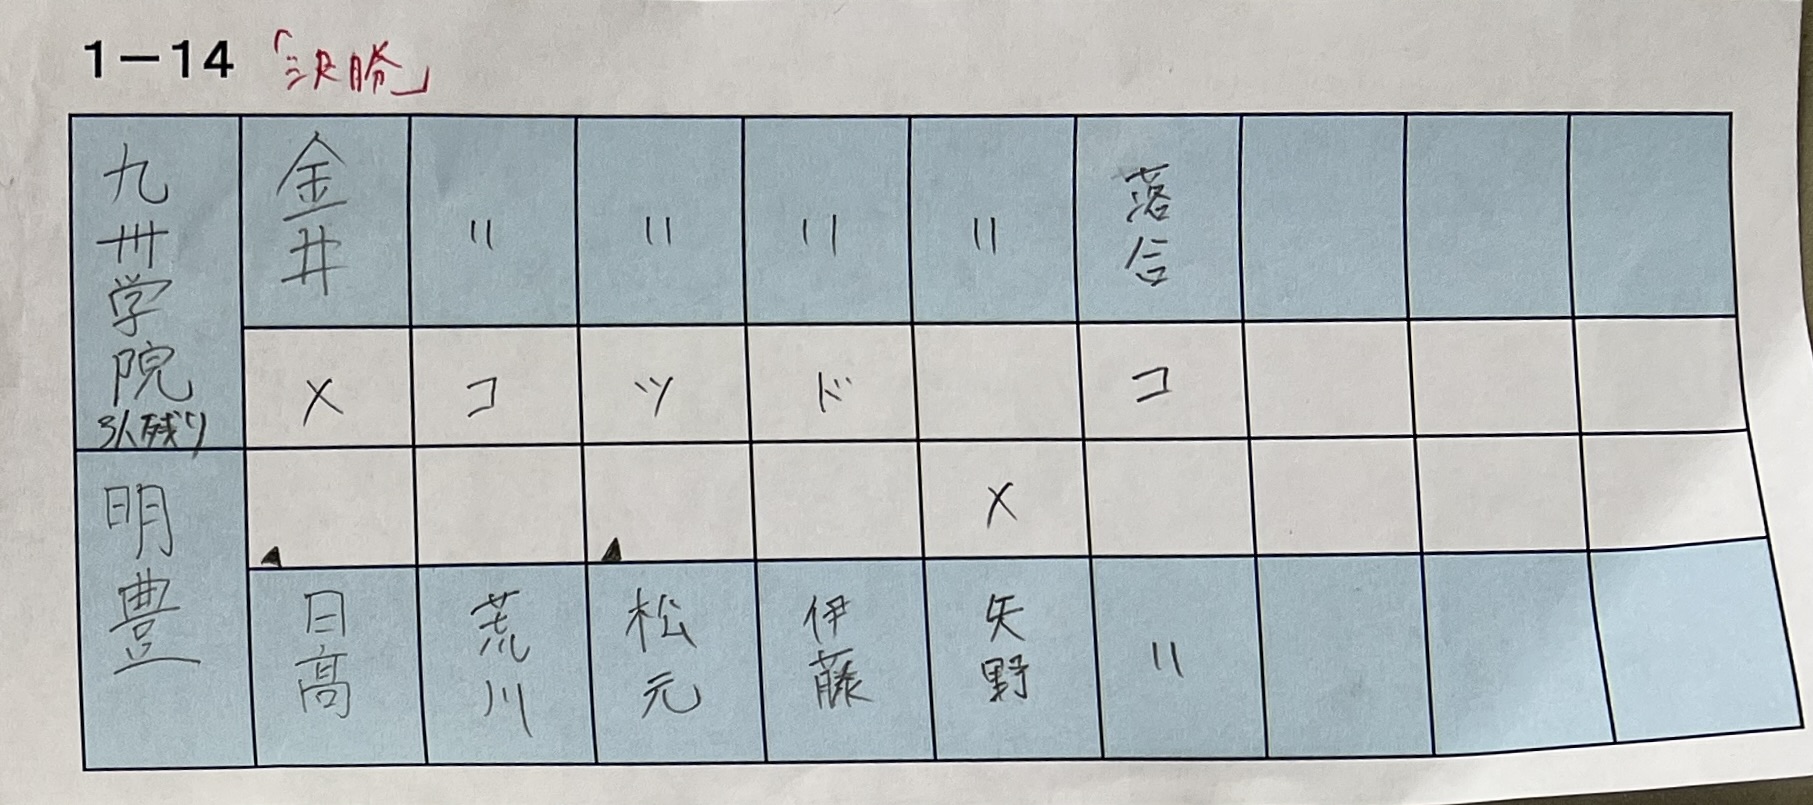 1−14 「決勝」
九州学院 3人残り 金井 〃 〃 〃 〃 落合
メ コ ツ ド コ
▲ ▲ メ
明豊 日高 荒川 松元 伊藤 矢野 〃